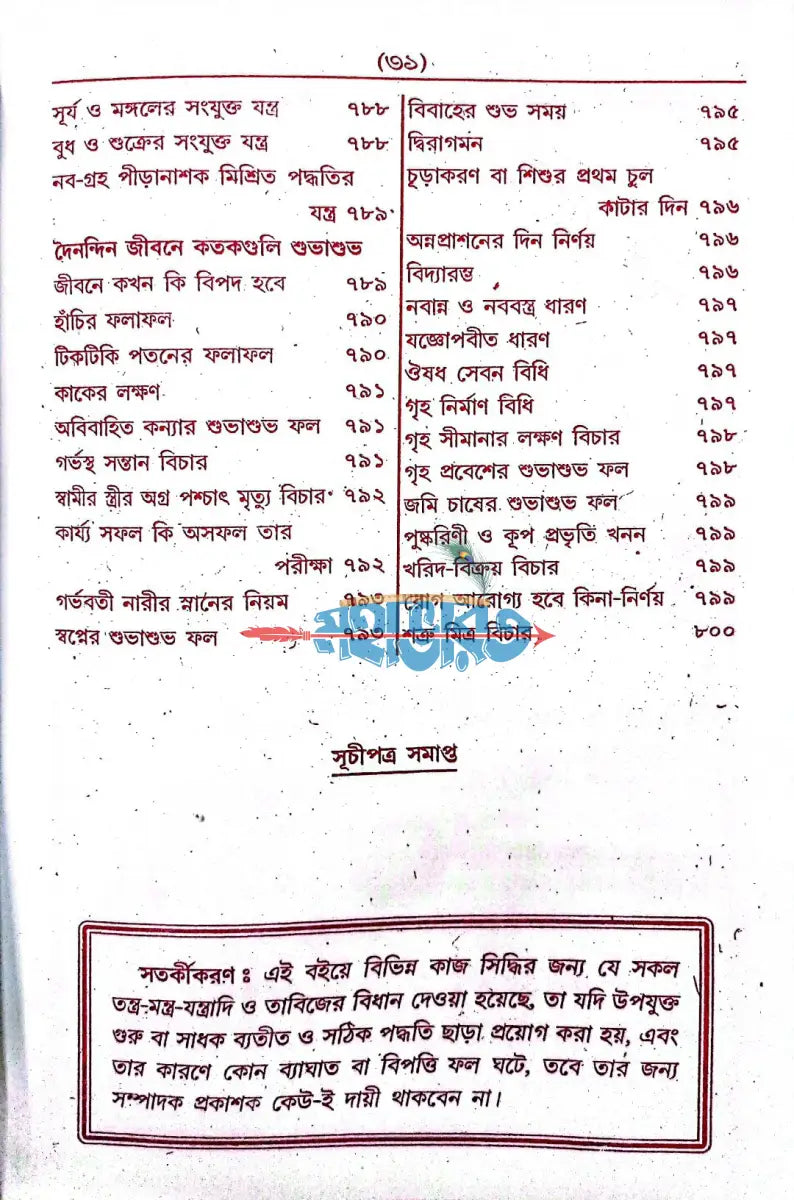 (৩১)
সূর্য ও মঙ্গলের সংযুক্ত যন্ত্র ৭৮৮
বুধ ও শুক্রের সংযুক্ত যন্ত্র ৭৮৮
নব-গ্রহ পীড়ানাশক মিশ্রিত পদ্ধতির
যন্ত্র ৭৮৯
দৈনন্দিন জীবনে কতকগুলি শুভাশুভ
জীবনে কখন কি বিপদ হবে ৭৮৯
হাঁচির ফলাফল ৭৯০
টিকটিকি পতনের ফলাফল ৭৯০
কাকের লক্ষণ ৭৯১
অবিবাহিত কন্যার শুভাশুভ ফল ৭৯১
গর্ভস্থ সন্তান বিচার ৭৯১
স্বামীর স্ত্রীর অগ্র পশ্চাৎ মৃত্যু বিচার ৭৯২
কার্য্য সফল কি অসফল তার
পরীক্ষা ৭৯২
গর্ভবতী নারীর স্নানের নিয়ম ৭৯৩
স্বপ্নের শুভাশুভ ফল ৭৯৩
বিবাহের শুভ সময় ৭৯৫
দ্বিরাগমন ৭৯৫
চূড়াকরণ বা শিশুর প্রথম চুল
কাটার দিন ৭৯৬
অন্নপ্রাশনের দিন নির্ণয় ৭৯৬
বিদ্যারম্ভ ৭৯৬
নবান্ন ও নববস্ত্র ধারণ ৭৯৭
যজ্ঞোপবীত ধারণ ৭৯৭
ঔষধ সেবন বিধি ৭৯৭
গৃহ নির্মাণ বিধি ৭৯৭
গৃহ সীমানার লক্ষণ বিচার ৭৯৮
গৃহ প্রবেশের শুভাশুভ ফল ৭৯৮
জমি চাষের শুভাশুভ ফল ৭৯৯
পুষ্করিণী ও কূপ প্রভৃতি খনন ৭৯৯
খরিদ-বিক্রয় বিচার ৭৯৯
রোগ আরোগ্য হবে কিনা-নির্ণয় ৭৯৯
শত্রু মিত্র বিচার ৮০০
মহাভারত
সূচীপত্র সমাপ্ত
সতর্কীকরণ ঃ এই বইয়ে বিভিন্ন কাজ সিদ্ধির জন্য যে সকল
তন্ত্র-মন্ত্র-যন্ত্রাদি ও তাবিজের বিধান দেওয়া হয়েছে, তা যদি উপযুক্ত
গুরু বা সাধক ব্যতীত ও সঠিক পদ্ধতি ছাড়া প্রয়োগ করা হয়, এবং
তার কারণে কোন ব্যাঘাত বা বিপত্তি ফল ঘটে, তবে তার জন্য
সম্পাদক প্রকাশক কেউ-ই দায়ী থাকবেন না।